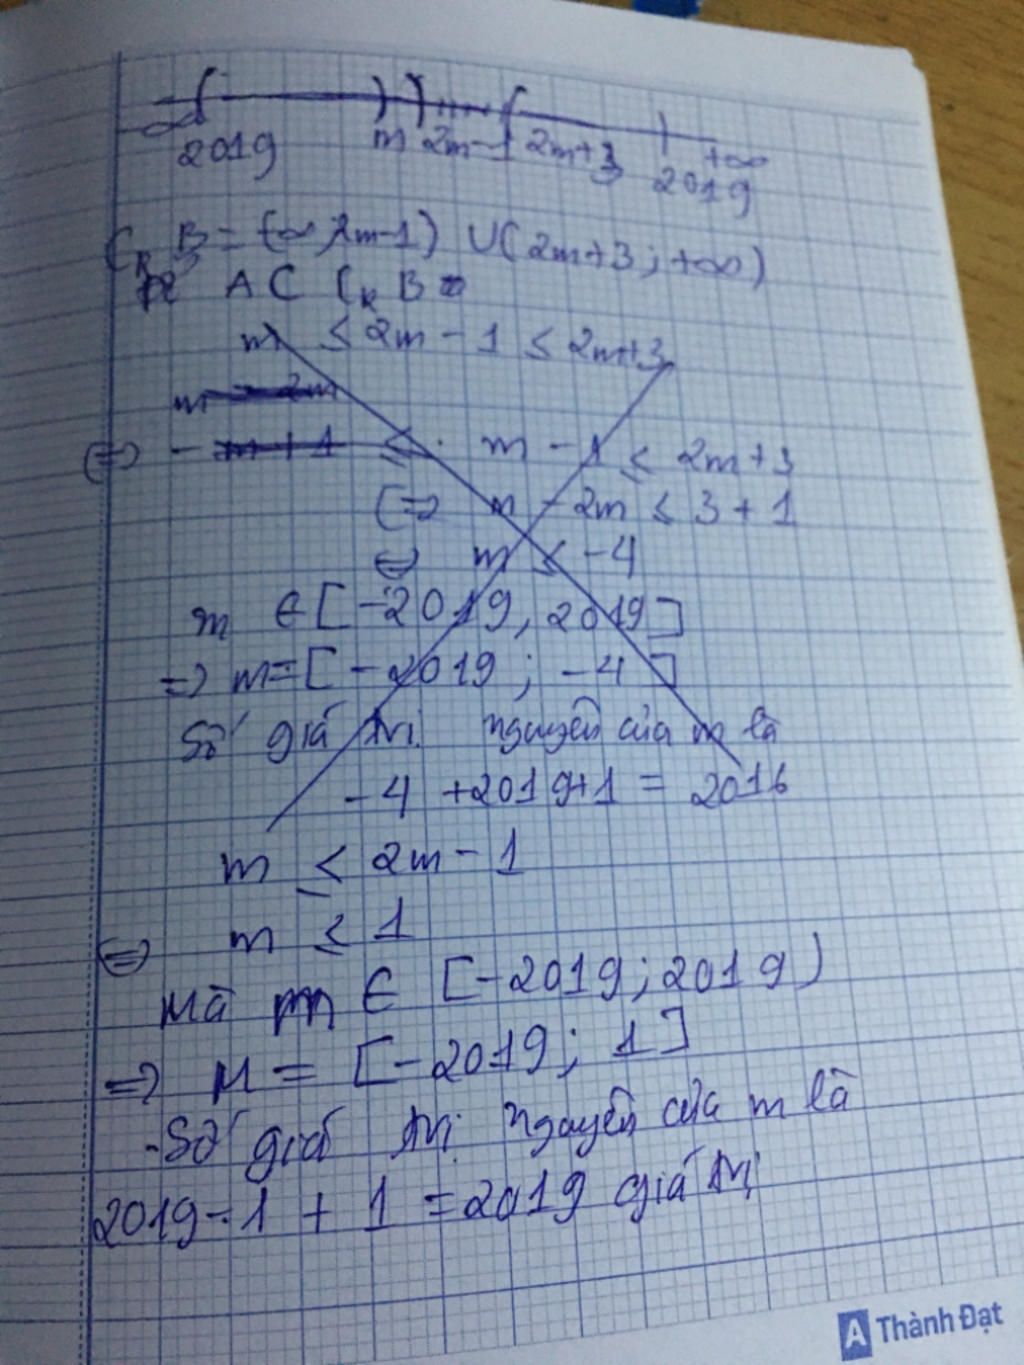 -∞ 2019 m 2m-1 2m+3 2019 +∞
C_R B = (-∞; 2m-1) ∪ (2m+3; +∞)
Để A ⊂ C_R B
m ≤ 2m - 1 ≤ 2m+3
⇔ - m + 1 ≤ m - 1 ≤ 2m+3
⇔ m - 2m ≤ 3 + 1
⇔ m ≤ -4
m ∈ [-2019, 2019]
⇒ m = [-2019; -4]
Số giá trị nguyên của m là
-4 +2019+1 = 2016
m ≤ 2m - 1
⇔ m ≤ 1
Mà m ∈ [-2019; 2019)
⇒ M = [-2019; 1]
-Số giá trị nguyên của m là
2019-1 + 1 = 2019 giá trị
A Thành Đạt